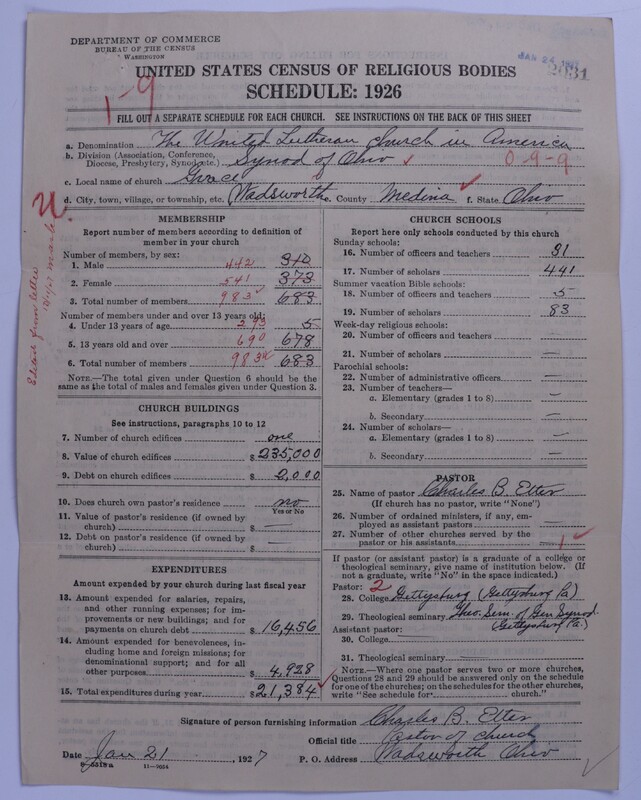 DEPARTMENT OF COMMERCE
BUREAU OF THE CENSUS
WASHINGTON
JAN 24 1927
2031
UNITED STATES CENSUS OF RELIGIOUS BODIES
SCHEDULE: 1926
1-9
FILL OUT A SEPARATE SCHEDULE FOR EACH CHURCH. SEE INSTRUCTIONS ON THE BACK OF THIS SHEET
a. Denomination The United Lutheran church in America
b. Division (Association, Conference, Diocese, Presbytery, Synod, etc.) Synod of Ohio ✓ 0-9-9
c. Local name of church Grace
d. City, town, village, or township, etc. Wadsworth e. County Medina ✓ f. State Ohio
MEMBERSHIP
Report number of members according to definition of
member in your church
Number of members, by sex:
1. Male 442 310
2. Female 541 373
3. Total number of members 983 ✓ 683
Number of members under and over 13 years old:
4. Under 13 years of age 293 5
5. 13 years old and over 690 678
6. Total number of members 983 683
NOTE.—The total given under Question 6 should be the
same as the total of males and females given under Question 3.
CHURCH BUILDINGS
See instructions, paragraphs 10 to 12
7. Number of church edifices one
8. Value of church edifices $ 235,000
9. Debt on church edifices $ 2,000
10. Does church own pastor's residence no
Yes or No
11. Value of pastor's residence (if owned by
church) $ —
12. Debt on pastor's residence (if owned by
church) $ —
EXPENDITURES
Amount expended by your church during last fiscal year
13. Amount expended for salaries, repairs,
and other running expenses; for im-
provements or new buildings; and for
payments on church debt $ 16,456
14. Amount expended for benevolences, in-
cluding home and foreign missions; for
denominational support; and for all
other purposes $ 4,928
15. Total expenditures during year $ 21,384 ✓
CHURCH SCHOOLS
Report here only schools conducted by this church
Sunday schools:
16. Number of officers and teachers 31
17. Number of scholars 441
Summer vacation Bible schools:
18. Number of officers and teachers 5
19. Number of scholars 83
Week-day religious schools:
20. Number of officers and teachers —
21. Number of scholars —
Parochial schools:
22. Number of administrative officers —
23. Number of teachers—
a. Elementary (grades 1 to 8) —
b. Secondary —
24. Number of scholars—
a. Elementary (grades 1 to 8) —
b. Secondary —
PASTOR
25. Name of pastor Charles B. Etter
(If church has no pastor, write "None")
26. Number of ordained ministers, if any, em-
ployed as assistant pastors —
27. Number of other churches served by the
pastor or his assistants 1 ✓
If pastor (or assistant pastor) is a graduate of a college or
theological seminary, give name of institution below. (If
not a graduate, write "No" in the space indicated.)
Pastor: 2
28. College Gettysburg (Gettysburg Pa)
29. Theological seminary Theo. Sem. of Gen Synod.
(Gettysburg Pa.)
Assistant pastor:
30. College
31. Theological seminary
NOTE.—Where one pastor serves two or more churches,
Questions 28 and 29 should be answered only on the schedule
for one of the churches; on the schedules for the other churches,
write "See schedule for church."
Signature of person furnishing information Charles B. Etter
Official title Pastor of church
Date Jan 21, 1927 P. O. Address Wadsworth Ohio
11—9034